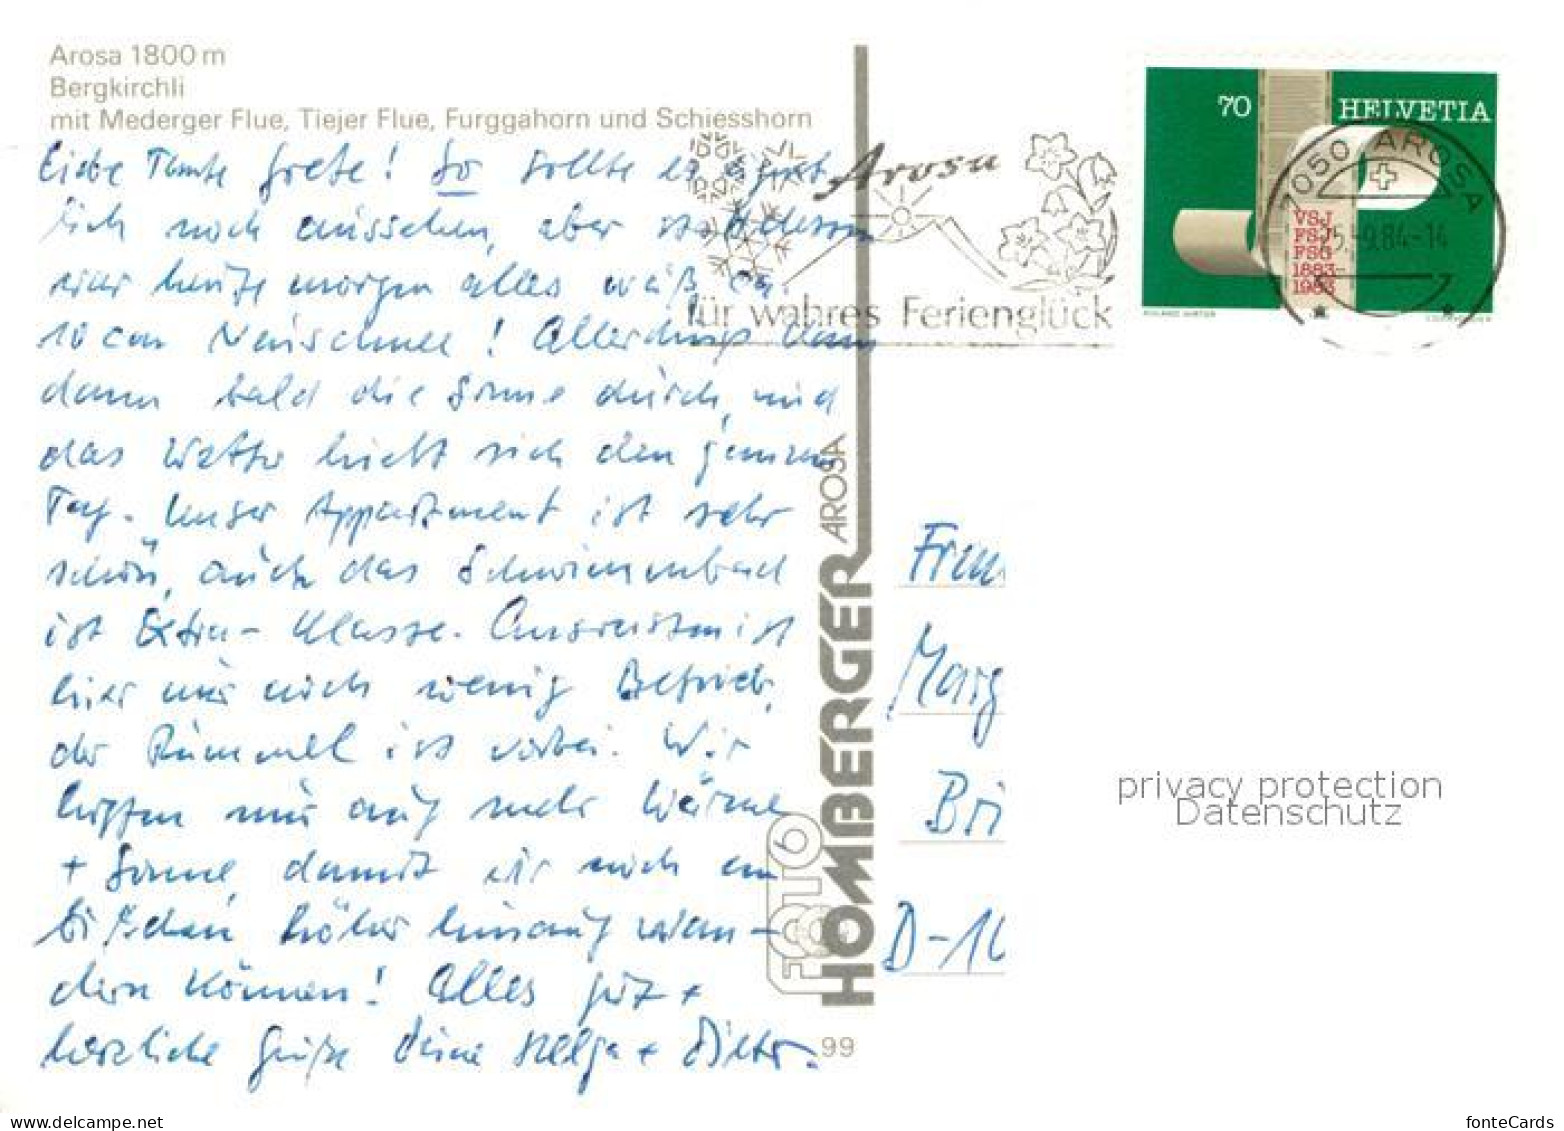 Arosa 1800 m
Bergkirchli
mit Mederger Flue, Tiejer Flue, Furggahorn und Schiesshorn
Liebe Tante Grete! So sollte es eigent
lich noch aussehen, aber stattdessen
war heute morgen alles weiß, ca.
10 cm Neuschnee! Allerdings kam
dann bald die Sonne durch, und
das Wetter hielt sich den ganzen
Tag. Unser Appartment ist sehr
schön, auch das Schwimmbad
ist Extra-Klasse. Ansonsten ist
hier nur noch wenig Betrieb,
der Rummel ist vorbei. Wir
hoffen nur auf mehr Wärme
+ Sonne, damit wir noch ein
bißchen höher hinauf wan-
dern können! Alles gute +
herzliche Grüße Deine Helga + Dieter.
Arosa
für wahres Ferienglück
70
HELVETIA
VSJ
FSJ
FSG
1883-
1983
7050 AROSA
-9.84-14
7
ROLAND HIRTER
COURVOISIER
FOTO
HOMBERGER AROSA
99
Frau
Marg
Bri
D-10
privacy protection
Datenschutz
www.delcampe.net
fonteCards